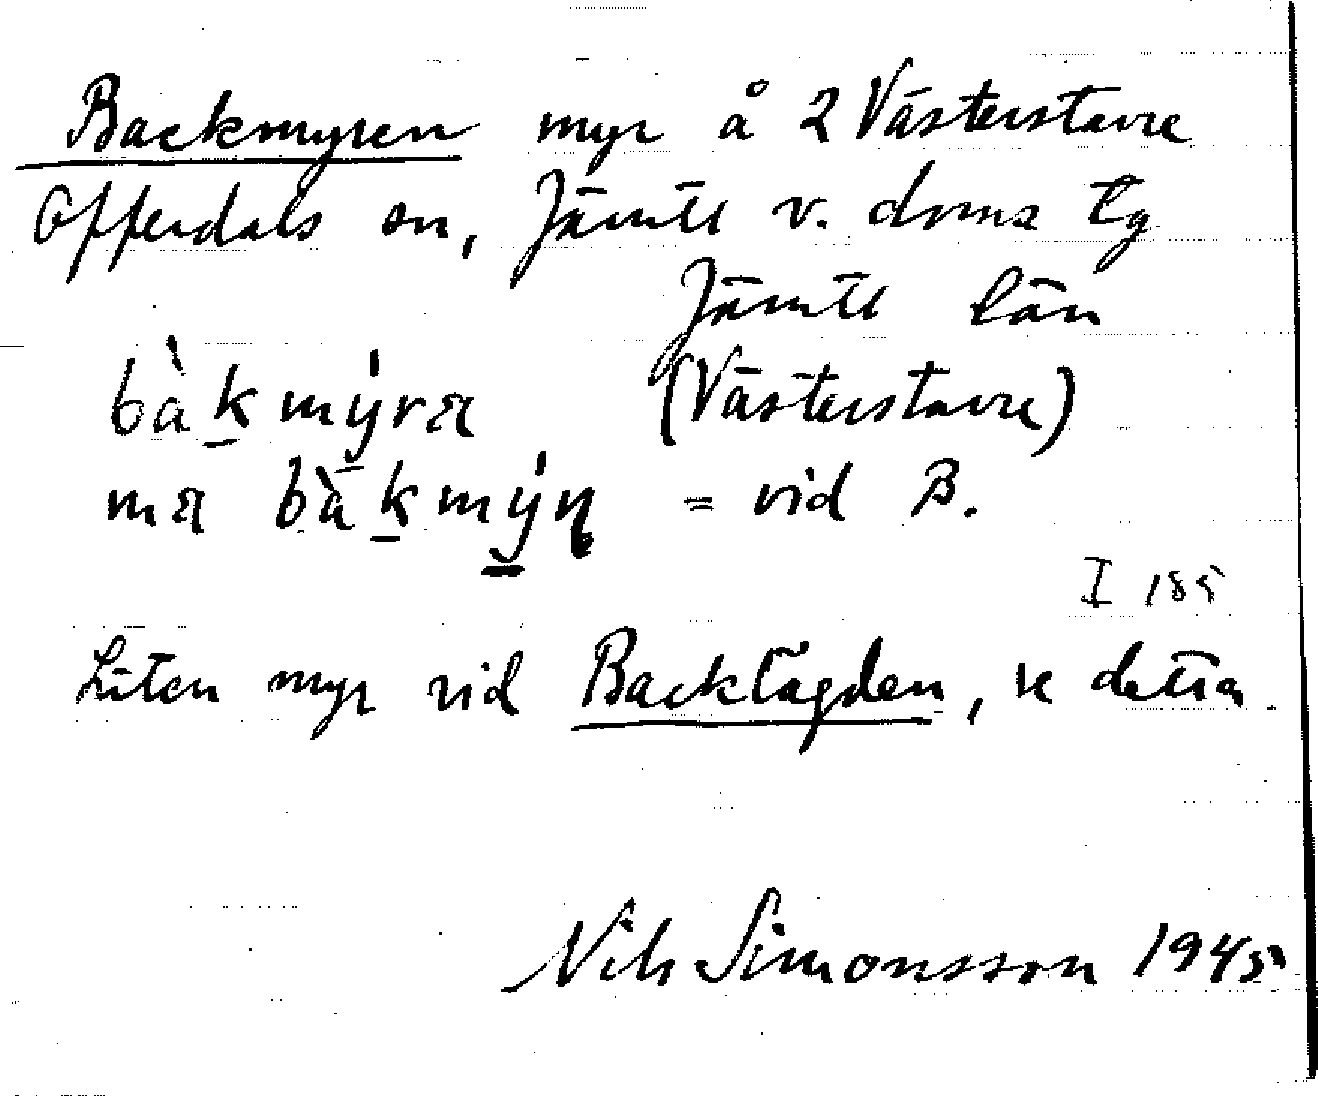 Backmyren myr å 2 Västerstavre
Offerdals sn, Jämtl v. doms lg
Jämtl län
bàk̠mýra (Västerstavre)
ma bàk̠mýn = vid B.
I 185
Liten myr vid Backlägden, se detta
Nils Simonsson 1945